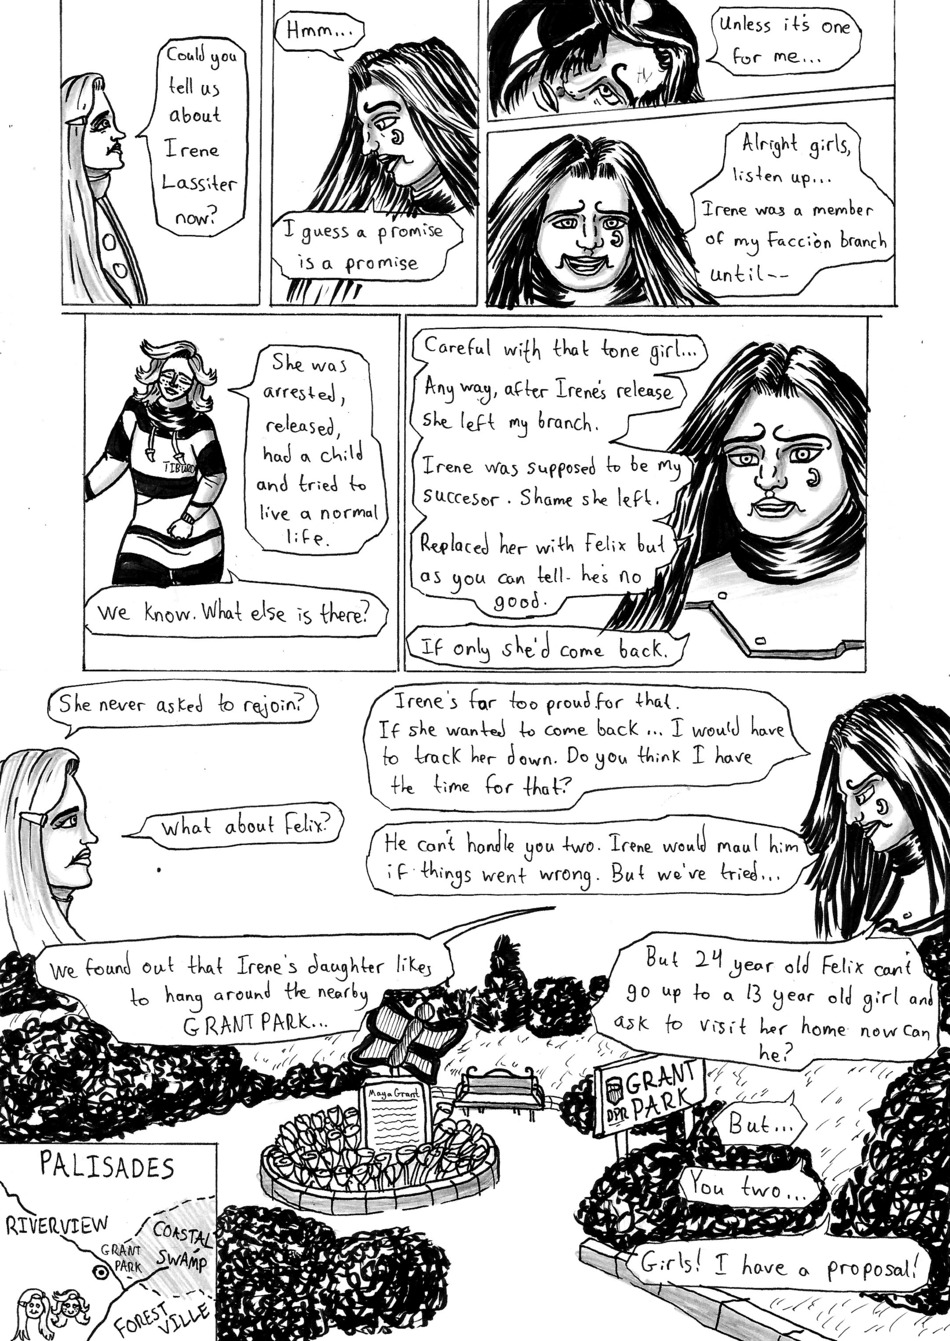 Could you
tell us
about
Irene
Lassiter
now?
Hmm...
I guess a promise
is a promise
Unless it's one
for me...
Alright girls,
listen up...
Irene was a member
of my Facción branch
until--
She was
arrested,
released,
had a child
and tried to
live a normal
life.
TIBURO
We know. What else is there?
Careful with that tone girl...
Any way, after Irene's release
she left my branch.
Irene was supposed to be my
succesor. Shame she left.
Replaced her with Felix but
as you can tell- he's no
good.
If only she'd come back.
She never asked to rejoin?
Irene's far too proud for that.
If she wanted to come back... I would have
to track her down. Do you think I have
the time for that?
What about Felix?
He can't handle you two. Irene would maul him
if things went wrong. But we've tried...
We found out that Irene's daughter likes
to hang around the nearby
GRANT PARK...
But 24 year old Felix can't
go up to a 13 year old girl and
ask to visit her home now can
he?
Maya Grant
GRANT
DPR PARK
But...
You two...
Girls! I have a proposal!
PALISADES
RIVERVIEW
COASTAL
SWAMP
GRANT
PARK
FOREST
VILLE